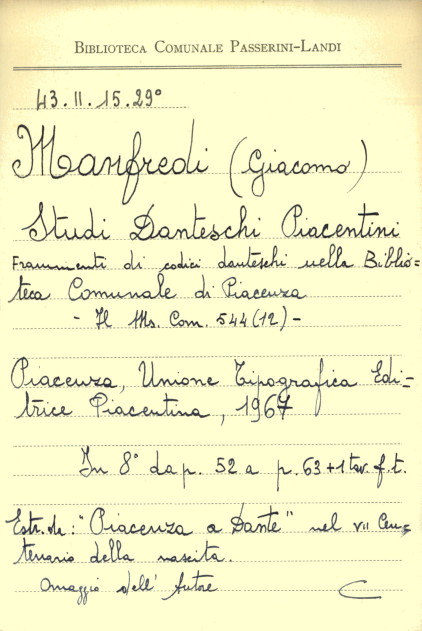 BIBLIOTECA COMUNALE PASSERINI-LANDI
43.II.15.29°
Manfredi (Giacomo)
Studi Danteschi Piacentini
Frammenti di codici danteschi nella Biblio=
teca Comunale di Piacenza
- Il Ms. Com. 544 (12) -
Piacenza, Unione Tipografica Edi=
trice Piacentina, 1967
In 8° da p. 52 a p. 63 + 1 tav. f. t.
Estr. da: "Piacenza a Dante" nel VII Cen=
tenario della nascita.
Omaggio dell'Autore
C